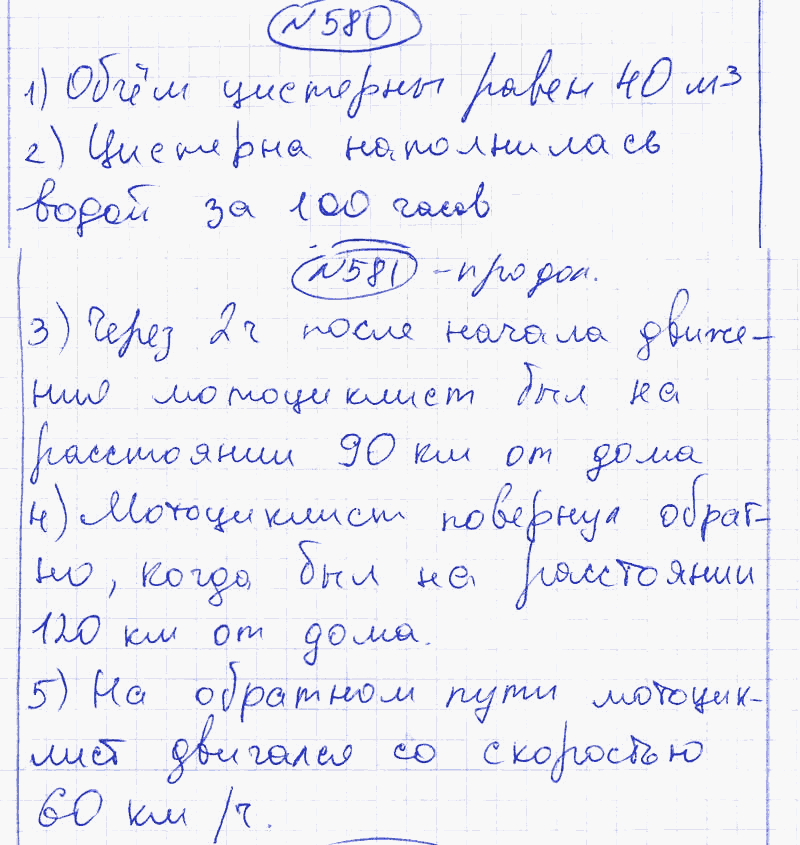 №580
1) Объём цистерны равен 40 м³
2) Цистерна наполнилась
водой за 100 часов
№581 - продол.
3) Через 2ч после начала движе-
ния мотоциклист был на
расстоянии 90 км от дома
4) Мотоциклист повернул обрат-
но, когда был на расстоянии
120 км от дома.
5) На обратном пути мотоцик-
лист двигался со скоростью
60 км/ч.